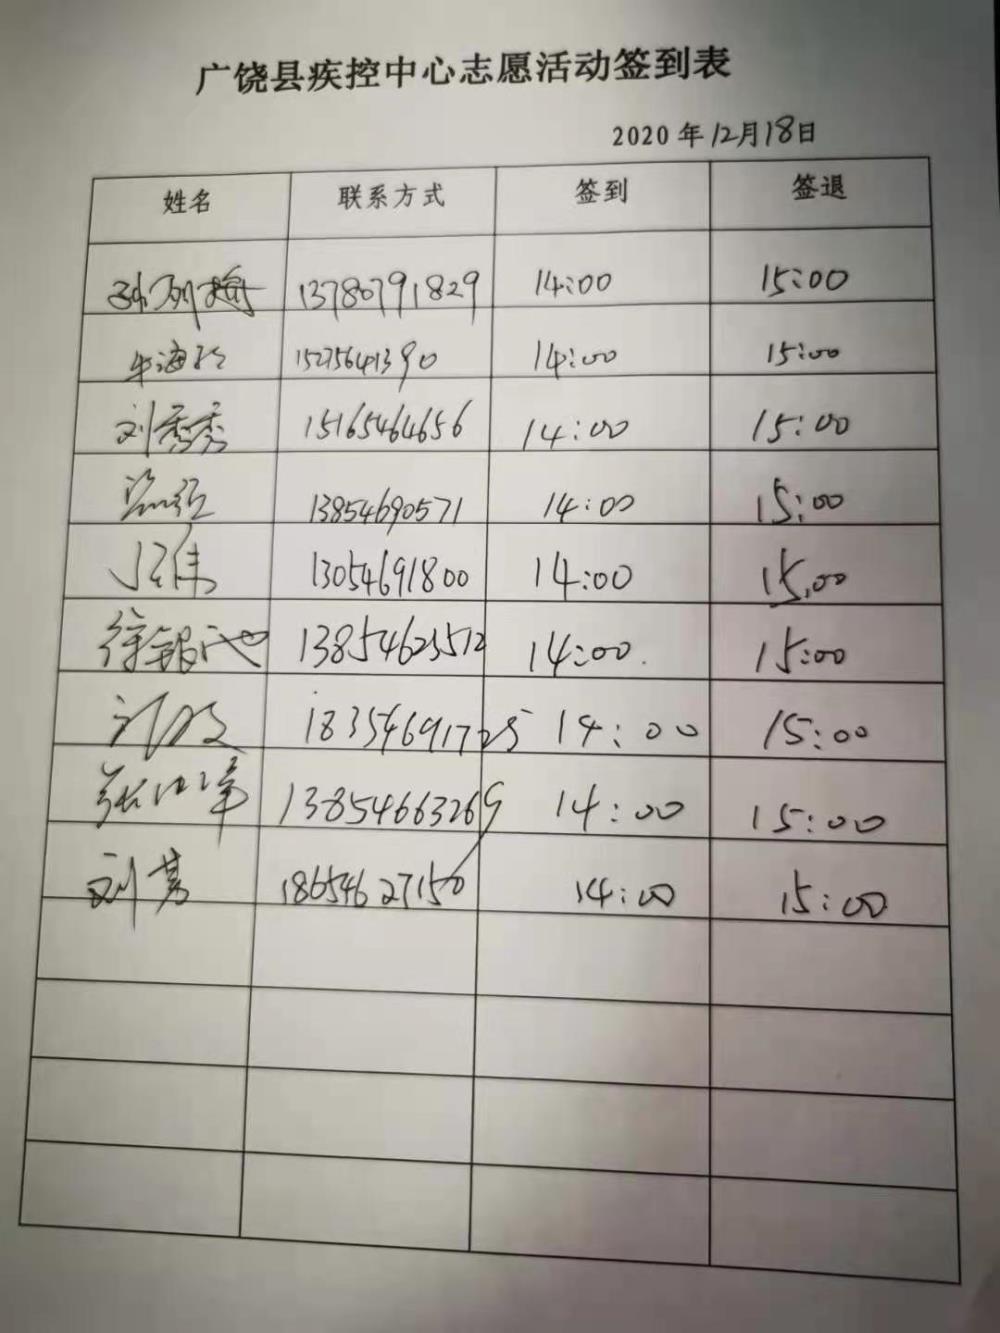 广饶县疾控中心志愿活动签到表
2020 年 12月18日
姓名 联系方式 签到 签退
13780791829 14:00 15:00
牛海 15275641390 14:00 15:00
刘秀秀 15165464656 14:00 15:00
13854690571 14:00 15:00
13054691800 14:00 15:00
徐银池 13854623512 14:00 15:00
刘 18354691725 14:00 15:00
张 13854663269 14:00 15:00
刘芳 18654627150 14:00 15:00